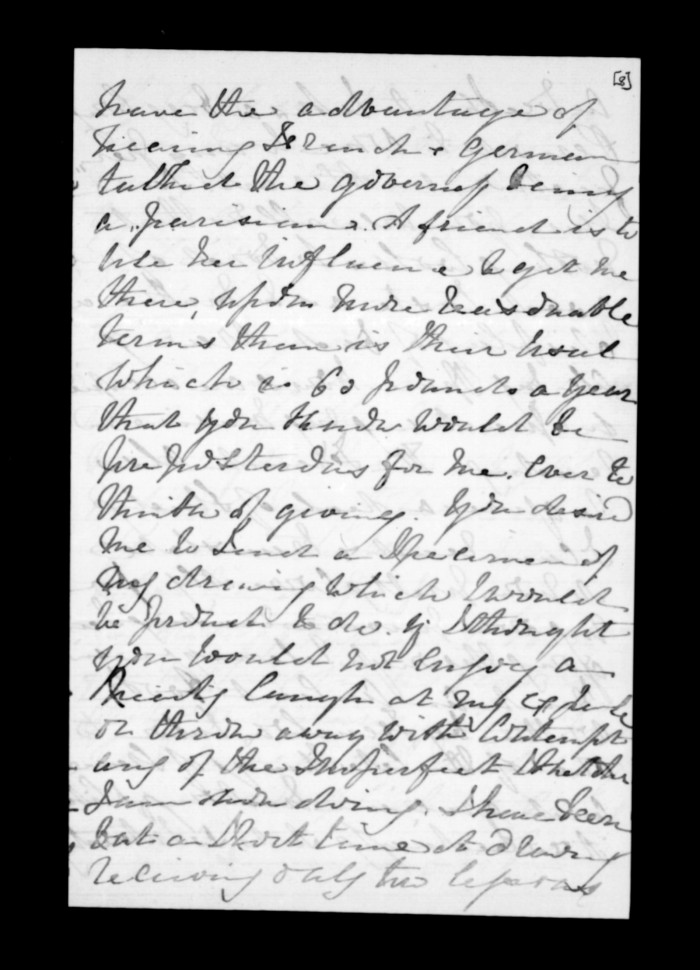 [8]
have the advantage of
hearing French & German
talked the governess being
a parisian. A friend is to
Use her influence to get me
there, upon more reasonable
terms than is their usual
Which is 60 pounds a year
that you know would be
preposterous for me. Ever to
think of giving. You desire
me to send a specimen of
my drawing which I would
be proud to do. if I thought
you would not enjoy a
hearty laugh at my
or throw away with Contempt
any of the Imperfect Sketches
I am now doing. I have been
but a Short time at drawing
receiving only two lessons